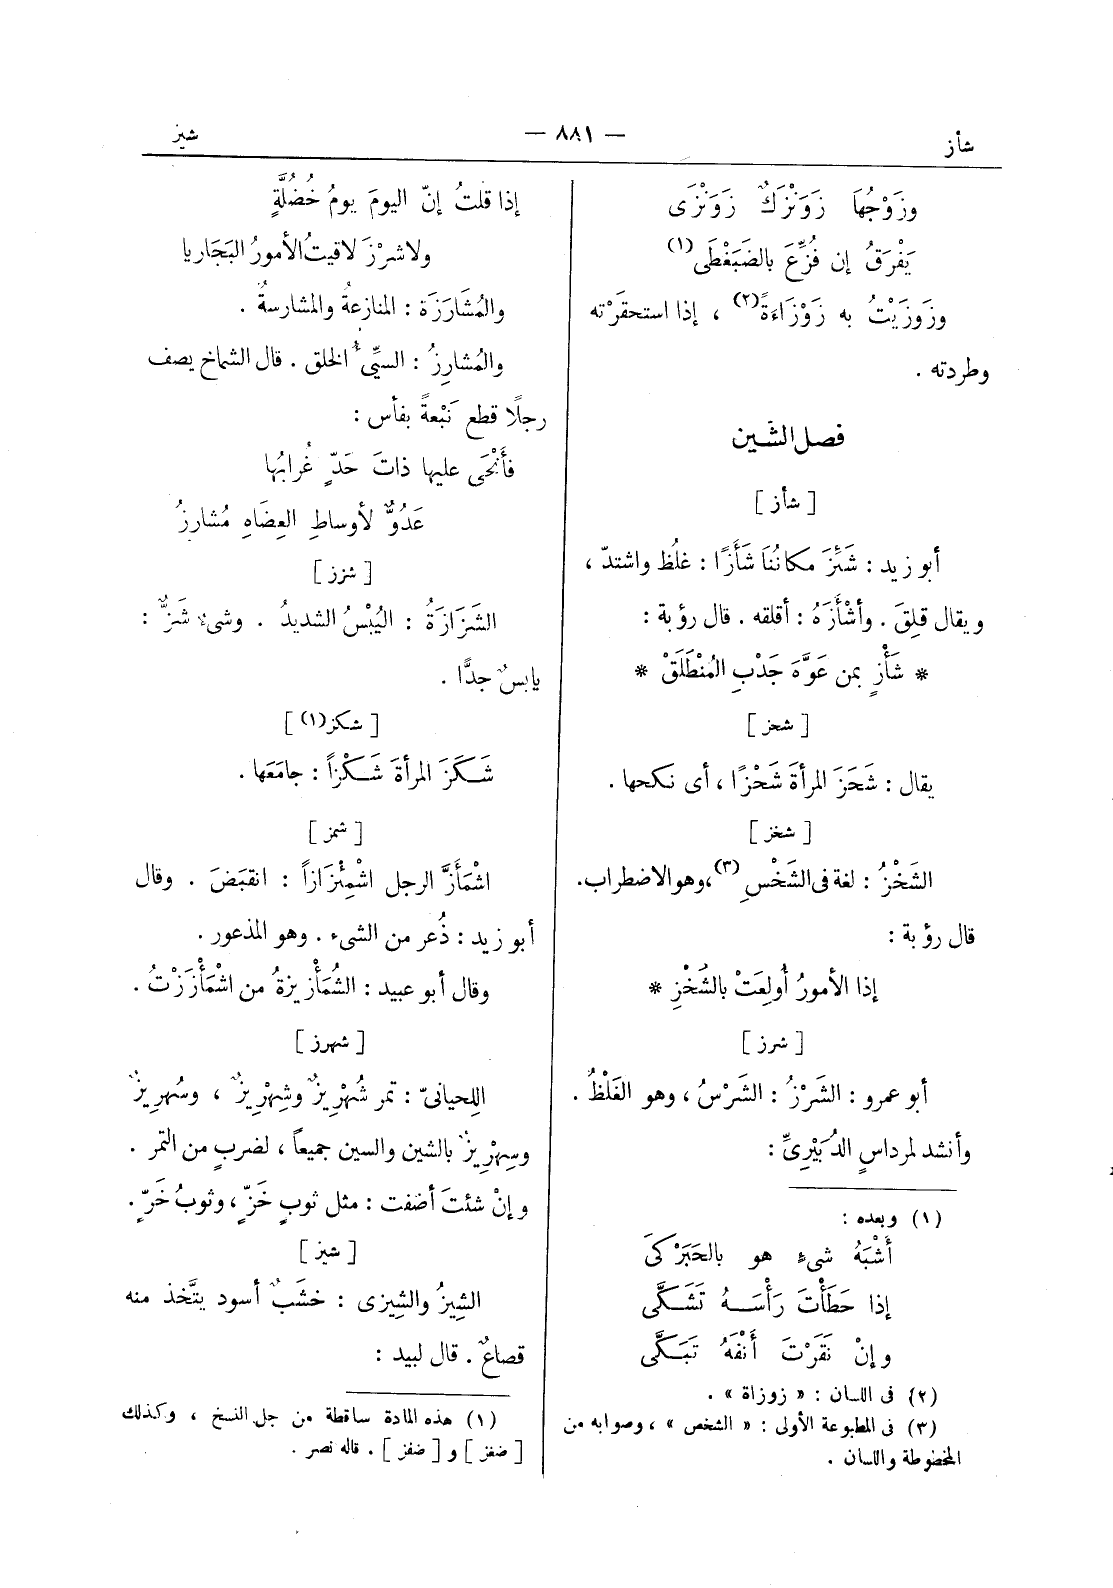 شأز
— ٨٨١ —
شيز
وزَوْجُهَا زَوَنْزَكٌ زَوَنْزَى
يَفْرَقُ إن فُزِّعَ بالضَبَغْطَى (١)
وزَوزَيْتُ به زَوْزَاءَةً (٢) ، إذا استحقَرْته
وطردته .
فصل الشين
[ شأز ]
أبو زيد : شَئِزَ مكانُنَا شَأَزًا : غلُظ واشتدّ ،
ويقال قلِقَ . وأشْأَزَهُ : أقلقه . قال رؤبة :
* شَأْزٍ بمن عَوَّهَ جَدْبِ المُنْطَلَقْ *
[ شحز ]
يقال : شَحَزَ المرأةَ شَحْزًا ، أى نكحها .
[ شخز ]
الشَخْزُ : لغة فى الشَخْسِ (٣) ، وهو الاضطراب .
قال رؤبة :
إذا الأمورُ أُولِعَتْ بالشَخْزِ *
[ شرز ]
أبو عمرو : الشَرْزُ : الشَرْسُ ، وهو الغَلْظُ .
وأنشد لمرداسٍ الدُبَيْرِىِّ :
(١) وبعده :
أَشْبَهُ شىءٍ هو بالحَبَرْكَى
إذا حَطَأْتَ رَأْسَهُ تَشَكَّى
وإنْ نَقَرْتَ أَنْفَهُ تَبَكَّى
(٢) فى اللسان : « زوزاة » .
(٣) فى المطبوعة الأولى : « الشخص » ، وصوابه من
المخطوطة واللسان .
إذا قلتُ إنّ اليومَ يومُ خُضُلَّةٍ
ولا شرْزَ لاقيتُ الأمورُ البَجَاريا
والمُشَارَزَة : المنازعةُ والمشارسةُ .
والمُشارِزُ : السيِّئ الخلق . قال الشماخ يصف
رجلًا قطع نَبْعةً بفأس :
فأَنْحَى عليها ذاتَ حَدّ غُرابُها
عَدُوٌّ لأوساطِ العِضَاهِ مُشارِزُ
[ شزز ]
الشَزَازَةُ : اليُبْسُ الشديدُ . وشىء شَزٌّ :
يابسٌ جدًّا .
[ شكز (١) ]
شَكَزَ المرأةَ شَكْزاً : جامَعَها .
[ شمز ]
اشْمَأَزَّ الرجل اشْمِئْزَازاً : انقبَضَ . وقال
أبو زيد : ذُعر من الشىء . وهو المذعور .
وقال أبو عبيد : الشُمَأْزِيزةُ من اشْمَأْزَزْتُ .
[ شهرز ]
اللحيانىّ : تمر شُهْرِيزٌ وشِهْرِيزٌ ، وسُهرِيزٌ
وسِهْرِيزٌ بالشين والسين جميعاً ، لضربٍ من التمر .
وإنْ شئتَ أضفت : مثل ثوبٍ خَزٍّ ، وثوبُ خَزٍّ .
[ شيز ]
الشِيزُ والشِيزى : خشَبٌ أسود يتَّخذ منه
قصاعٌ . قال لبيد :
(١) هذه المادة ساقطة من جل النسخ ، وكذلك
[ ضغز ] و [ ضفز ] . قاله نصر .